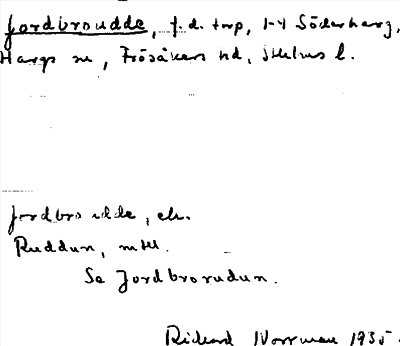 Jordbroudde, f.d. torp, 1-4 Söderharg,
Hargs sn, Frösåkers hd, Sthlms l.
Jordbroudde, el.
Ruddun, mtl.
Se Jordbrorudun.
Richard Norrman 1935.